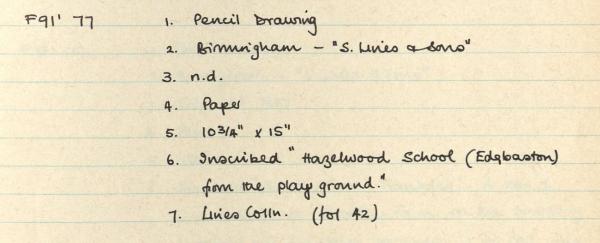 F91' 77 1. Pencil Drawing
2. Birmingham - "S. Lines & Sons"
3. n.d.
4. Paper
5. 10 3/4" x 15"
6. Inscribed "Hazelwood School (Edgbaston)
from the play ground."
7. Lines Colln. (fol 42)